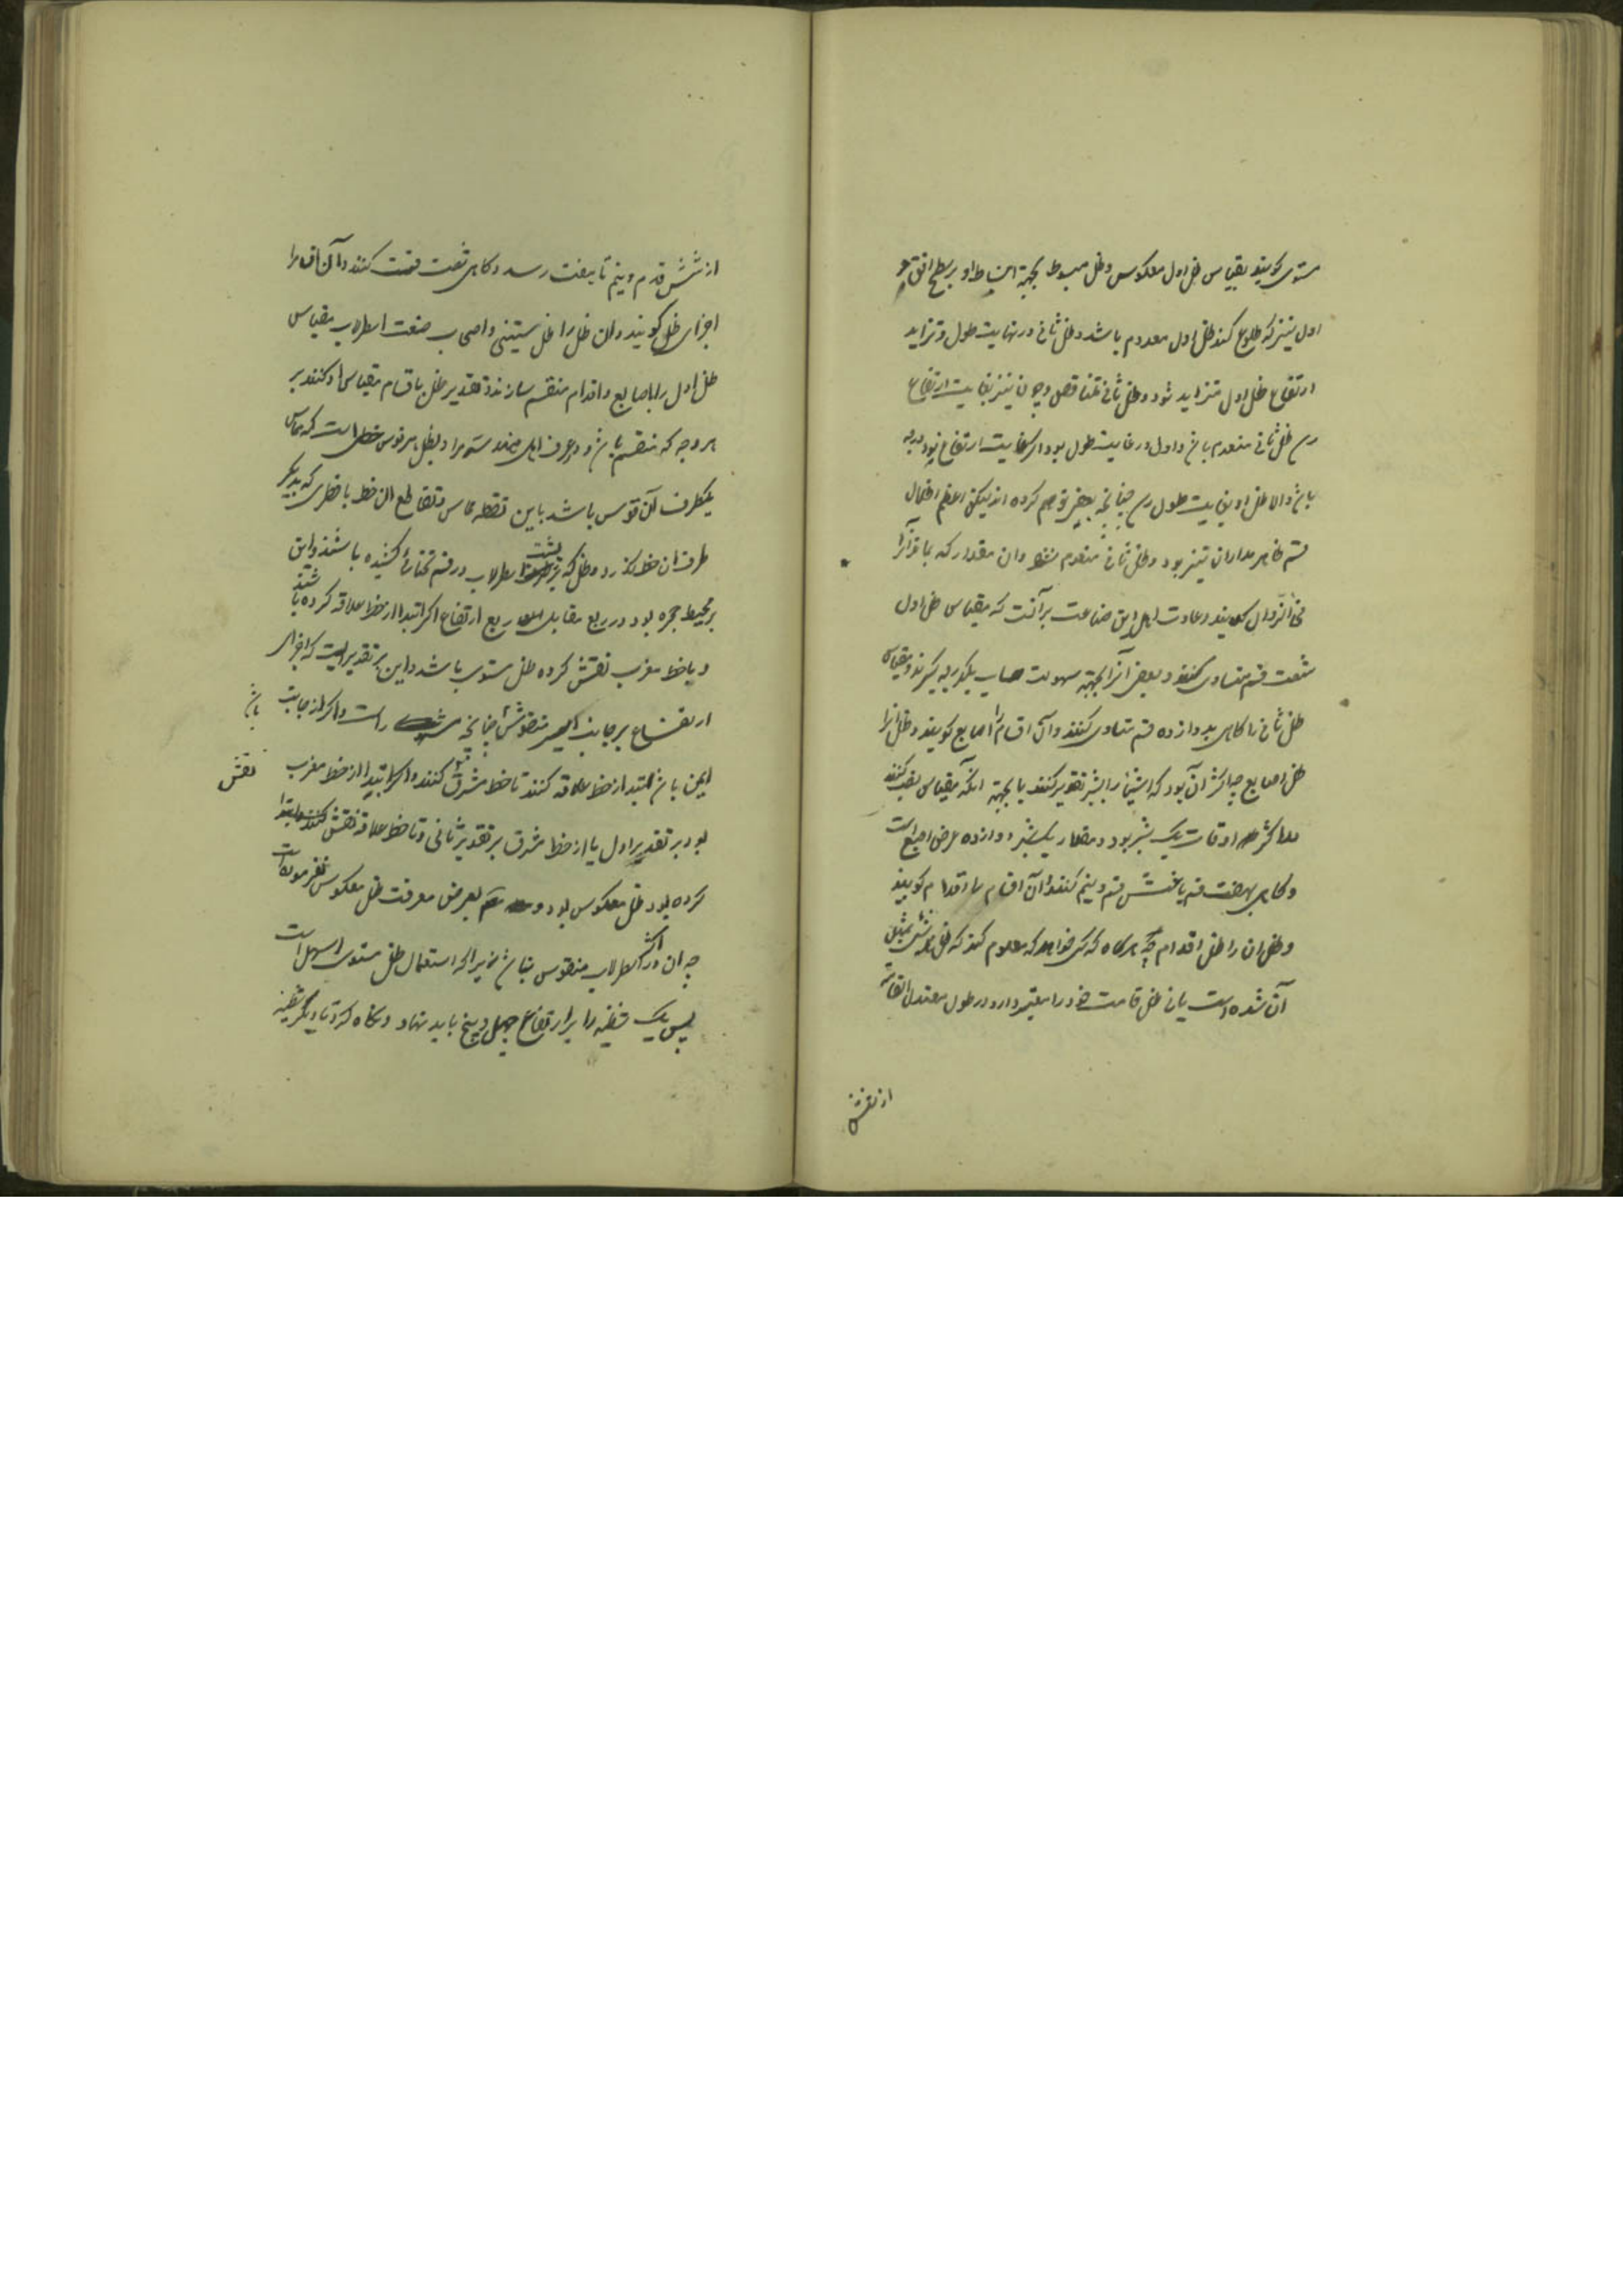 مستوی گویند بقیاس ظل اول معکوس و ظل مبسوط بجهة انبساط او بر سطح افق و
اول نیر که طلوع کند ظل اول معدوم باشد و ظل ثانی در نهایت طول و تزاید
ارتفاع ظل اول متزاید شود و ظل ثانی متناقص و چون نیر بغایت ارتفاع
رسد ظل ثانی منعدم باشد و اول در غایت طول بود اگر غایت ارتفاع نود درجه
باشد والا ظل او بغایت طول رسد چنانچه بعضی توهم کرده اند لیکن اعظم اظلال
قسم ظاهر مدار آن نیر بود و ظل ثانی منعدم نشود و آن مقدار که بماند آنرا
فی الزوال گویند و عادت اهل این صناعت بر آنست که مقیاس ظل اول
شصت قسم متساوی کنند و بعضی آنرا بجهة سهولت حساب یکدرجه گیرند و مقیاس
ظل ثانی را گاهی بدوازده قسم متساوی کنند و آن اقسام را اصابع گویند و ظل آنرا
ظل اصابع چه اکثر آن بود که اشیا را بشبر تقدیر کنند یا بجهة آنکه مقیاس نصب کنند
اکثر اوقات یک شبر بود و مقدار یک شبر دوازده عرض اصبع است
و گاهی بهفت قسم یا شش قسم و نیم کنند و آن اقسام را اقدام گویند
و ظل آن را ظل اقدام چه هرگاه که کسی خواهد که معلوم کند که ظل هر شئ بمثل
آن شده است یا نه ظل قامت خود را معتبر دارد و طول معتدل القامة
از شش
از شش قدم و نیم تا بهفت رسد و گاهی شصت قسمت کنند و آن اقسام را
اجزای ظل گویند و آن ظل را ظل ستینی و اصحاب صنعت اسطرلاب مقیاس
ظل اول را باصابع و اقدام منقسم سازند و تقدیر ظل باقسام مقیاس او کنند بر
هر وجه که منقسم باشد و در عرف اهل هندسه مراد بظل هر قوس خطی است که مماس
یکطرف آن قوس باشد باین نقطه تماس و تقاطع آن خط با خطی که بدیگر
طرف آن خط گذرد و ظل که بر پشت اسطرلاب در قسم تحتانی کشیده باشند و این
بر محیط حجره بود در ربع مقابل ربع ارتفاع اگر ابتدا از خط علاقه کرده باشند
و یا خط مغرب نقش کرده ظل مستوی باشد و این بر تقدیریست که اجزای
ارتفاع بر جانب ایسر منقوش باشد چنانچه راست و اگر از جانب
ایمن باشد ابتدا از خط علاقه کنند تا خط مشرق نقش کنند و اگر ابتدا از خط مغرب
بود بر تقدیر اول یا از خط مشرق بر تقدیر ثانی و تا خط علاقه نقش
کرده بود ظل معکوس بود و بعرض معرفت ظل معکوس نفرموده است
چه آن در اکثر اسطرلاب منقوس نباشد زیرا که استعمال ظل مستوی اسهل است
پس یک شظیه را بر ارتفاع چهل و پنج باید نهاد و نگاه کرد تا دیگر شظیه